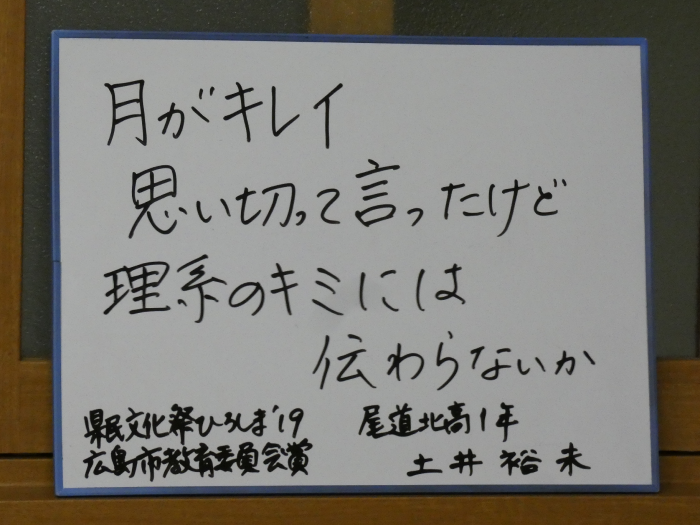 月がキレイ
思い切って言ったけど
理系のキミには
伝わらないか
県民文化祭ひろしま'19
尾道北高1年
広島市教育委員会賞
土井裕未